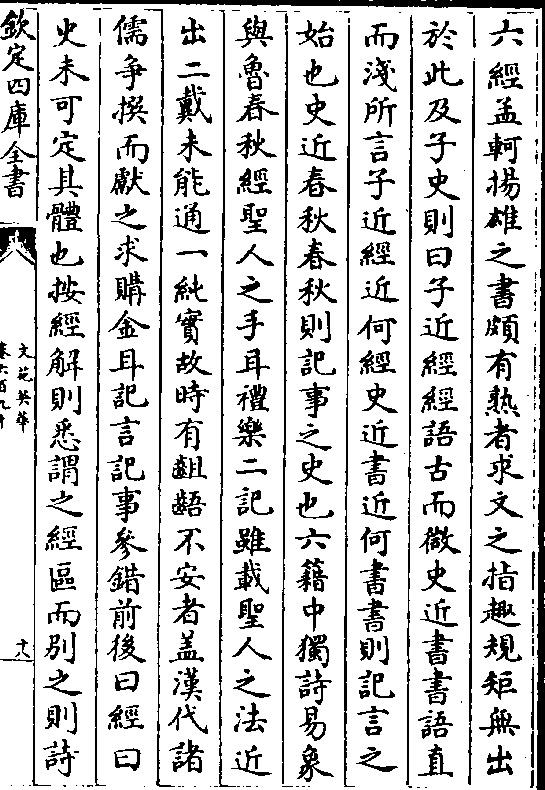 六經孟軻揚雄之書頗有熟者求文之指趣規矩無出
於此及子史則曰子近經經語古而微史近書書語直
而淺所言子近經近何經史近書近何書書則記言之
始也史近春秋春秋則記事之史也六籍中獨詩易象
與魯春秋經聖人之手耳禮樂二記雖載聖人之法近
出二戴未能通一純實故時有齟齬不安者盖漢代諸
儒爭撰而獻之求購金耳記言記事參錯前後曰經曰
史未可定其體也按經解則悉謂之經區而别之則詩
欽定四庫全書
文苑英華
卷六百九十
十八